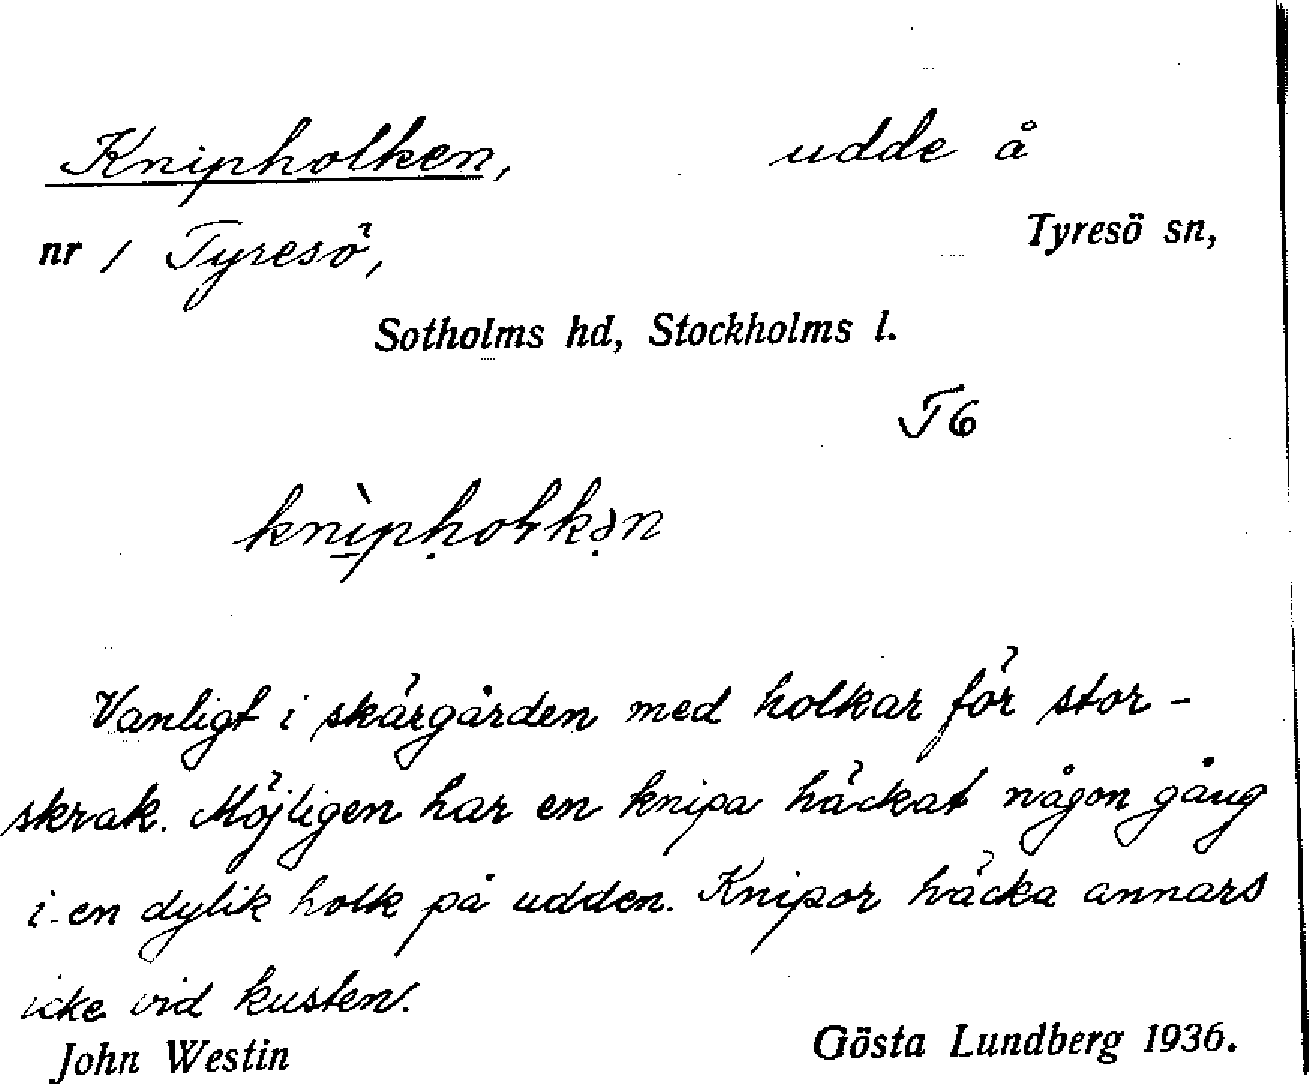 Knipholken, udde å
nr 1 Tyresö, Tyresö sn,
Sotholms hd, Stockholms l.
T6
knìp̣hołkə̣n
Vanligt i skärgården med holkar för stor-
skrak. Möjligen har en knipa häckat någon gång
i en dylik holk på udden. Knipor häcka annars
icke vid kusten.
John Westin Gösta Lundberg 1936.